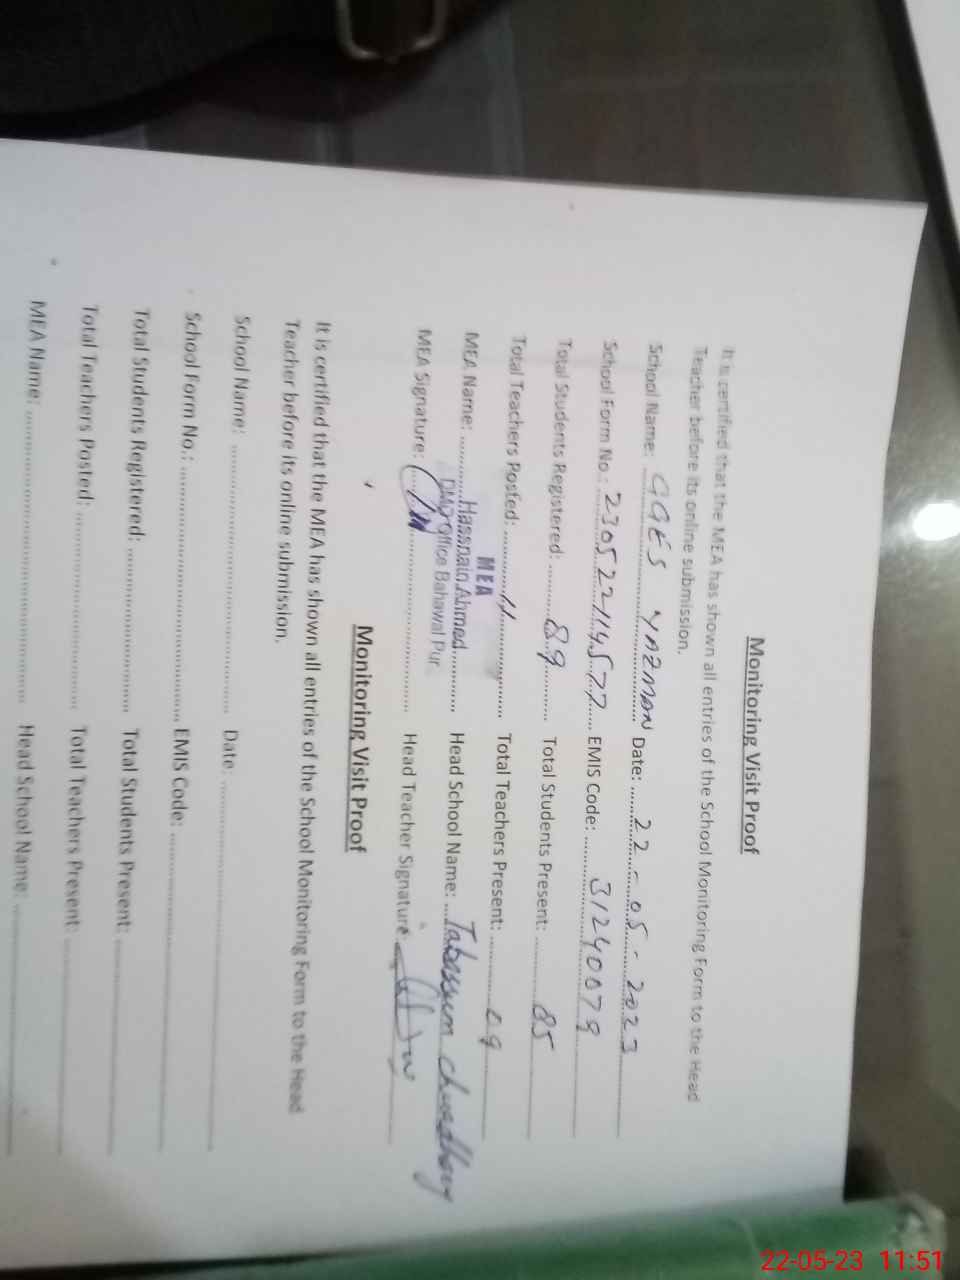 Monitoring Visit Proof
It is certified that the MEA has shown all entries of the School Monitoring Form to the Head
Teacher before its online submission.
School Name: GGES YAZMAN Date: 22-05-2023
School Form No.: 230522114577 EMIS Code: 31240079
Total Students Registered: 89 Total Students Present: 85
Total Teachers Posted: 11 Total Teachers Present: 09
MEA
MEA Name: Hassnain Ahmed Head School Name: Tabassum Chuadhary
DMO Office Bahawal Pur
MEA Signature: Head Teacher Signature
Monitoring Visit Proof
It is certified that the MEA has shown all entries of the School Monitoring Form to the Head
Teacher before its online submission.
School Name: Date:
School Form No.: EMIS Code:
Total Students Registered: Total Students Present:
Total Teachers Posted: Total Teachers Present:
MEA Name: Head School Name:
22-05-23 11:51